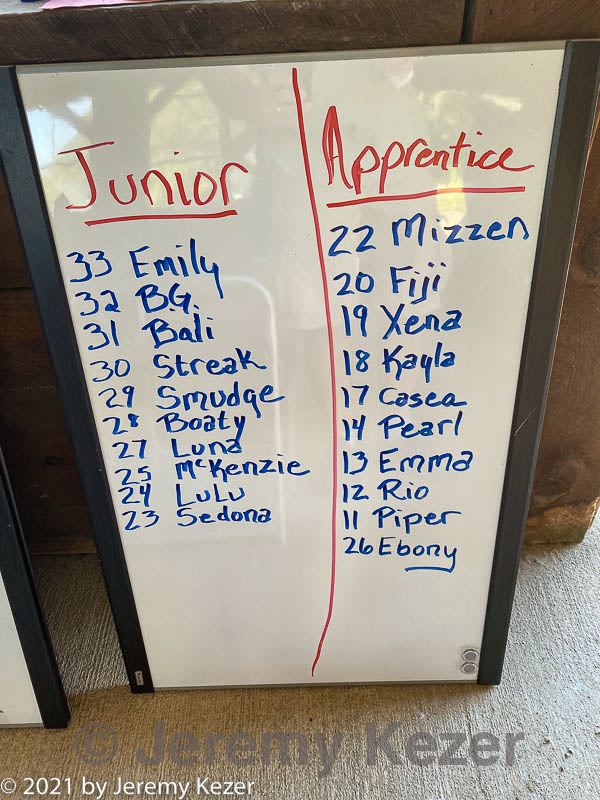 Junior
33 Emily
32 B.G.
31 Bali
30 Streak
29 Smudge
28 Boaty
27 Luna
25 McKenzie
24 LuLu
23 Sedona
Apprentice
22 Mizzen
20 Fiji
19 Xena
18 Kayla
17 Casea
14 Pearl
13 Emma
12 Rio
11 Piper
26 Ebony
© Jeremy Kezer
© 2021 by Jeremy Kezer